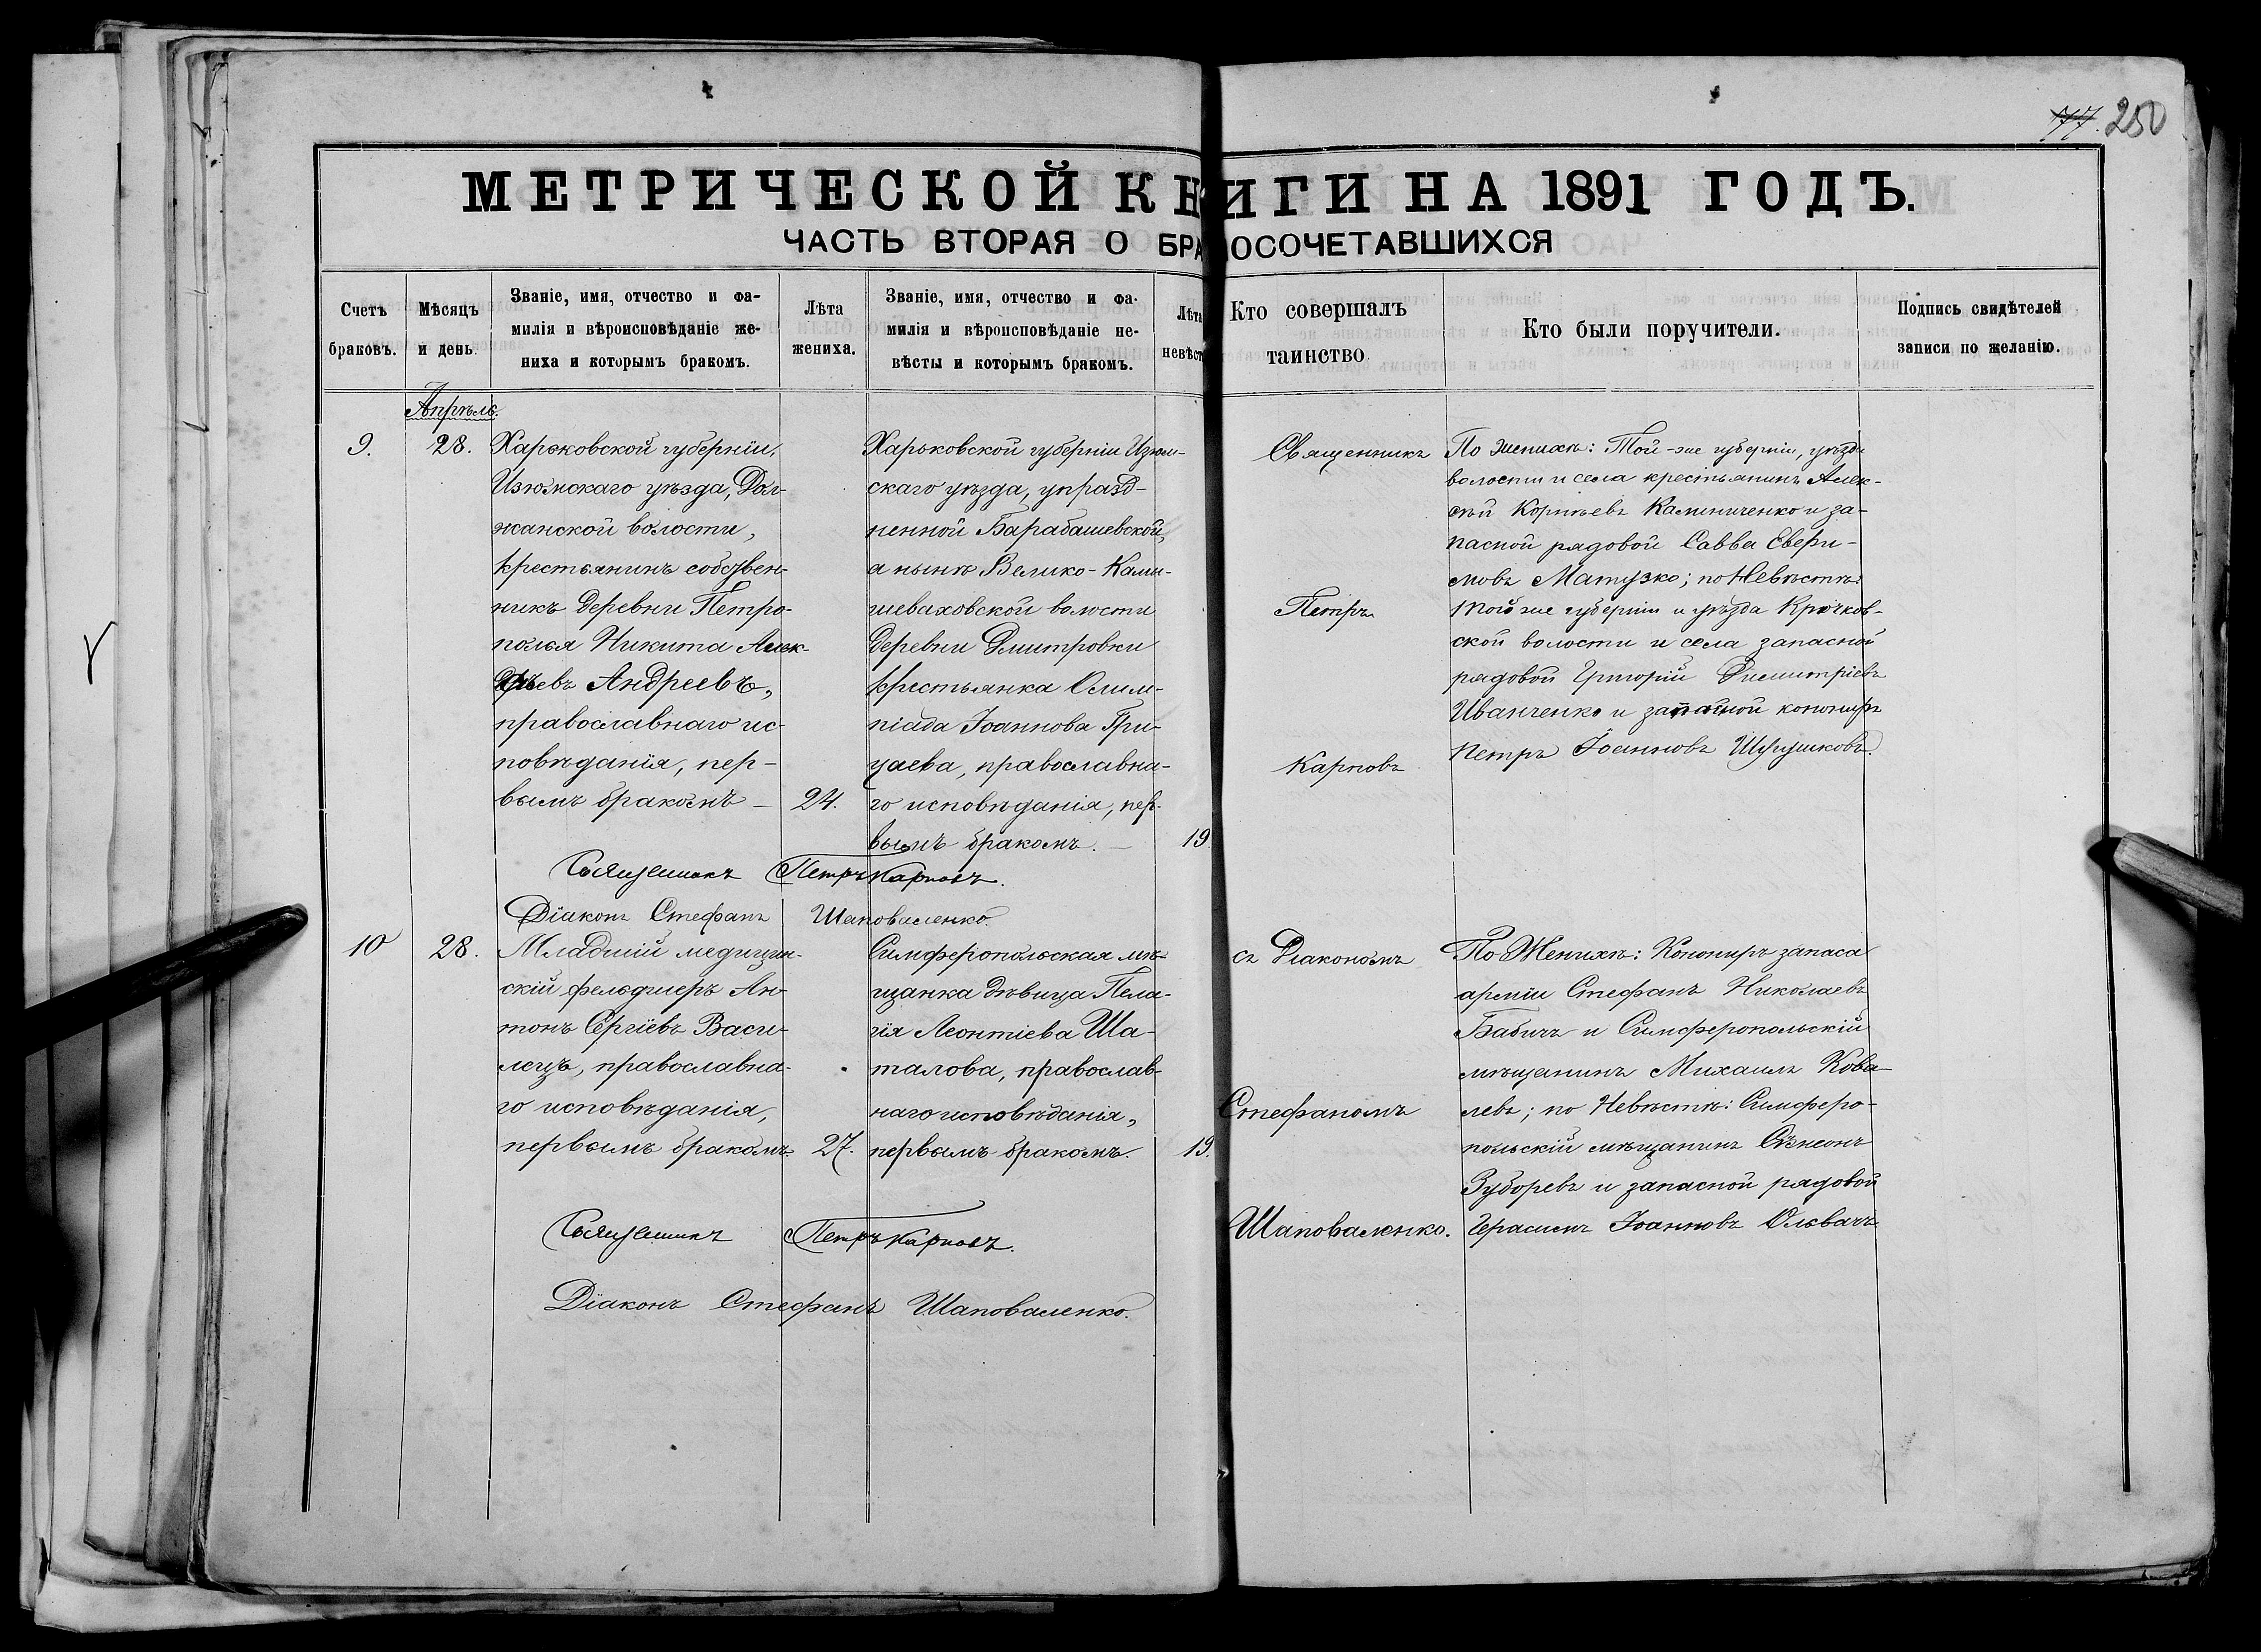 77. 250
МЕТРИЧЕСКОЙ КНИГИ НА 1891 ГОДЪ.
ЧАСТЬ ВТОРАЯ О БРАКОСОЧЕТАВШИХСЯ
Счетъ
браковъ.
Мѣсяцъ
и день.
Званіе, имя, отчество и фа-
милія и вѣроисповѣданіе же-
ниха и которымъ бракомъ.
Лѣта
жениха.
Званіе, имя, отчество и фа-
милія и вѣроисповѣданіе не-
вѣсты и которымъ бракомъ.
Лѣта
невѣст
Кто совершалъ
таинство
Кто были поручители.
Подпись свидѣтелей
записи по желанію.
Апрѣль.
9.
28.
Харьковской губерніи,
Изюмскаго уѣзда, Дол-
жанской волости,
крестьянинъ собствен-
никъ деревни Петро-
полья Никита Алек-
сѣевъ Андреевъ,
православнаго ис-
повѣданія, пер-
вымъ бракомъ —
24.
Харьковской губерніи Изюм-
скаго уѣзда, упразд-
ненной Барабашевской,
а нынѣ Велико-Камы-
шеваховской волости
деревни Дмитровки
крестьянка Олим-
піада Іоаннова Гри-
цаева, православна-
го исповѣданія, пер-
вымъ бракомъ. —
19.
Священникъ
Петръ
Карповъ
По женихѣ: Той-же губерніи, уѣзда
волости и села крестьянинъ Алек-
сѣй Корнѣевъ Калиниченко и за-
пасной рядовой Савва Евфи-
мовъ Матузко; по Невѣстѣ:
той же губерніи и уѣзда Крючков-
ской волости и села запасной
рядовой Григорій Димитріевъ
Иванченко и запасной канониръ
Петръ Іоанновъ
Священникъ Петръ Карповъ.
Діаконъ Стефанъ Шаповаленко.
10
28.
Младшій медицин-
скій фельдшеръ Ан-
тонъ Сергіевъ Васи-
лецъ, православна-
го исповѣданія,
первымъ бракомъ.
27.
Симферопольская мѣ-
щанка дѣвица Пела-
гія Леонтіева Ша-
талова, православ-
наго исповѣданія,
первымъ бракомъ.
19.
съ Діакономъ
Стефаномъ
Шаповаленко.
По Женихѣ: Канониръ запаса
арміи Стефанъ Николаевъ
Бабичъ и Симферопольскій
мѣщанинъ Михаилъ Кова-
левъ; по Невѣстѣ: Симферо-
польскій мѣщанинъ Сѵмеонъ
Зуборевъ и запасной рядовой
Герасимъ Іоанновъ Ольвачъ
Священникъ Петръ Карповъ.
Діаконъ Стефанъ Шаповаленко.